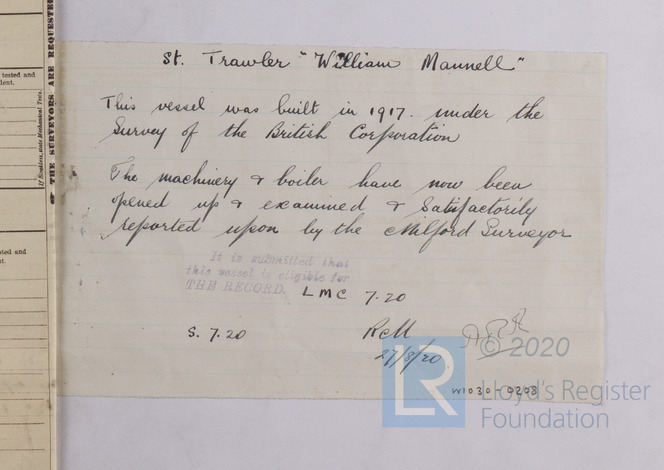 St. Trawler "William Mannell"
This vessel was built in 1917. under the
Survey of the British Corporation
The machinery & boiler have now been
opened up & examined & Satisfactorily
reported upon by the Milford Surveyor
It is submitted that
this vessel is eligible for
THE RECORD. LMC 7.20
S. 7.20
27/8/20
W1030-0208
© 2020
LR
Lloyd's Register
Foundation
tested and
dent.
If Steamless, state Mechanical Tests.
THE SURVEYORS ARE REQUESTE